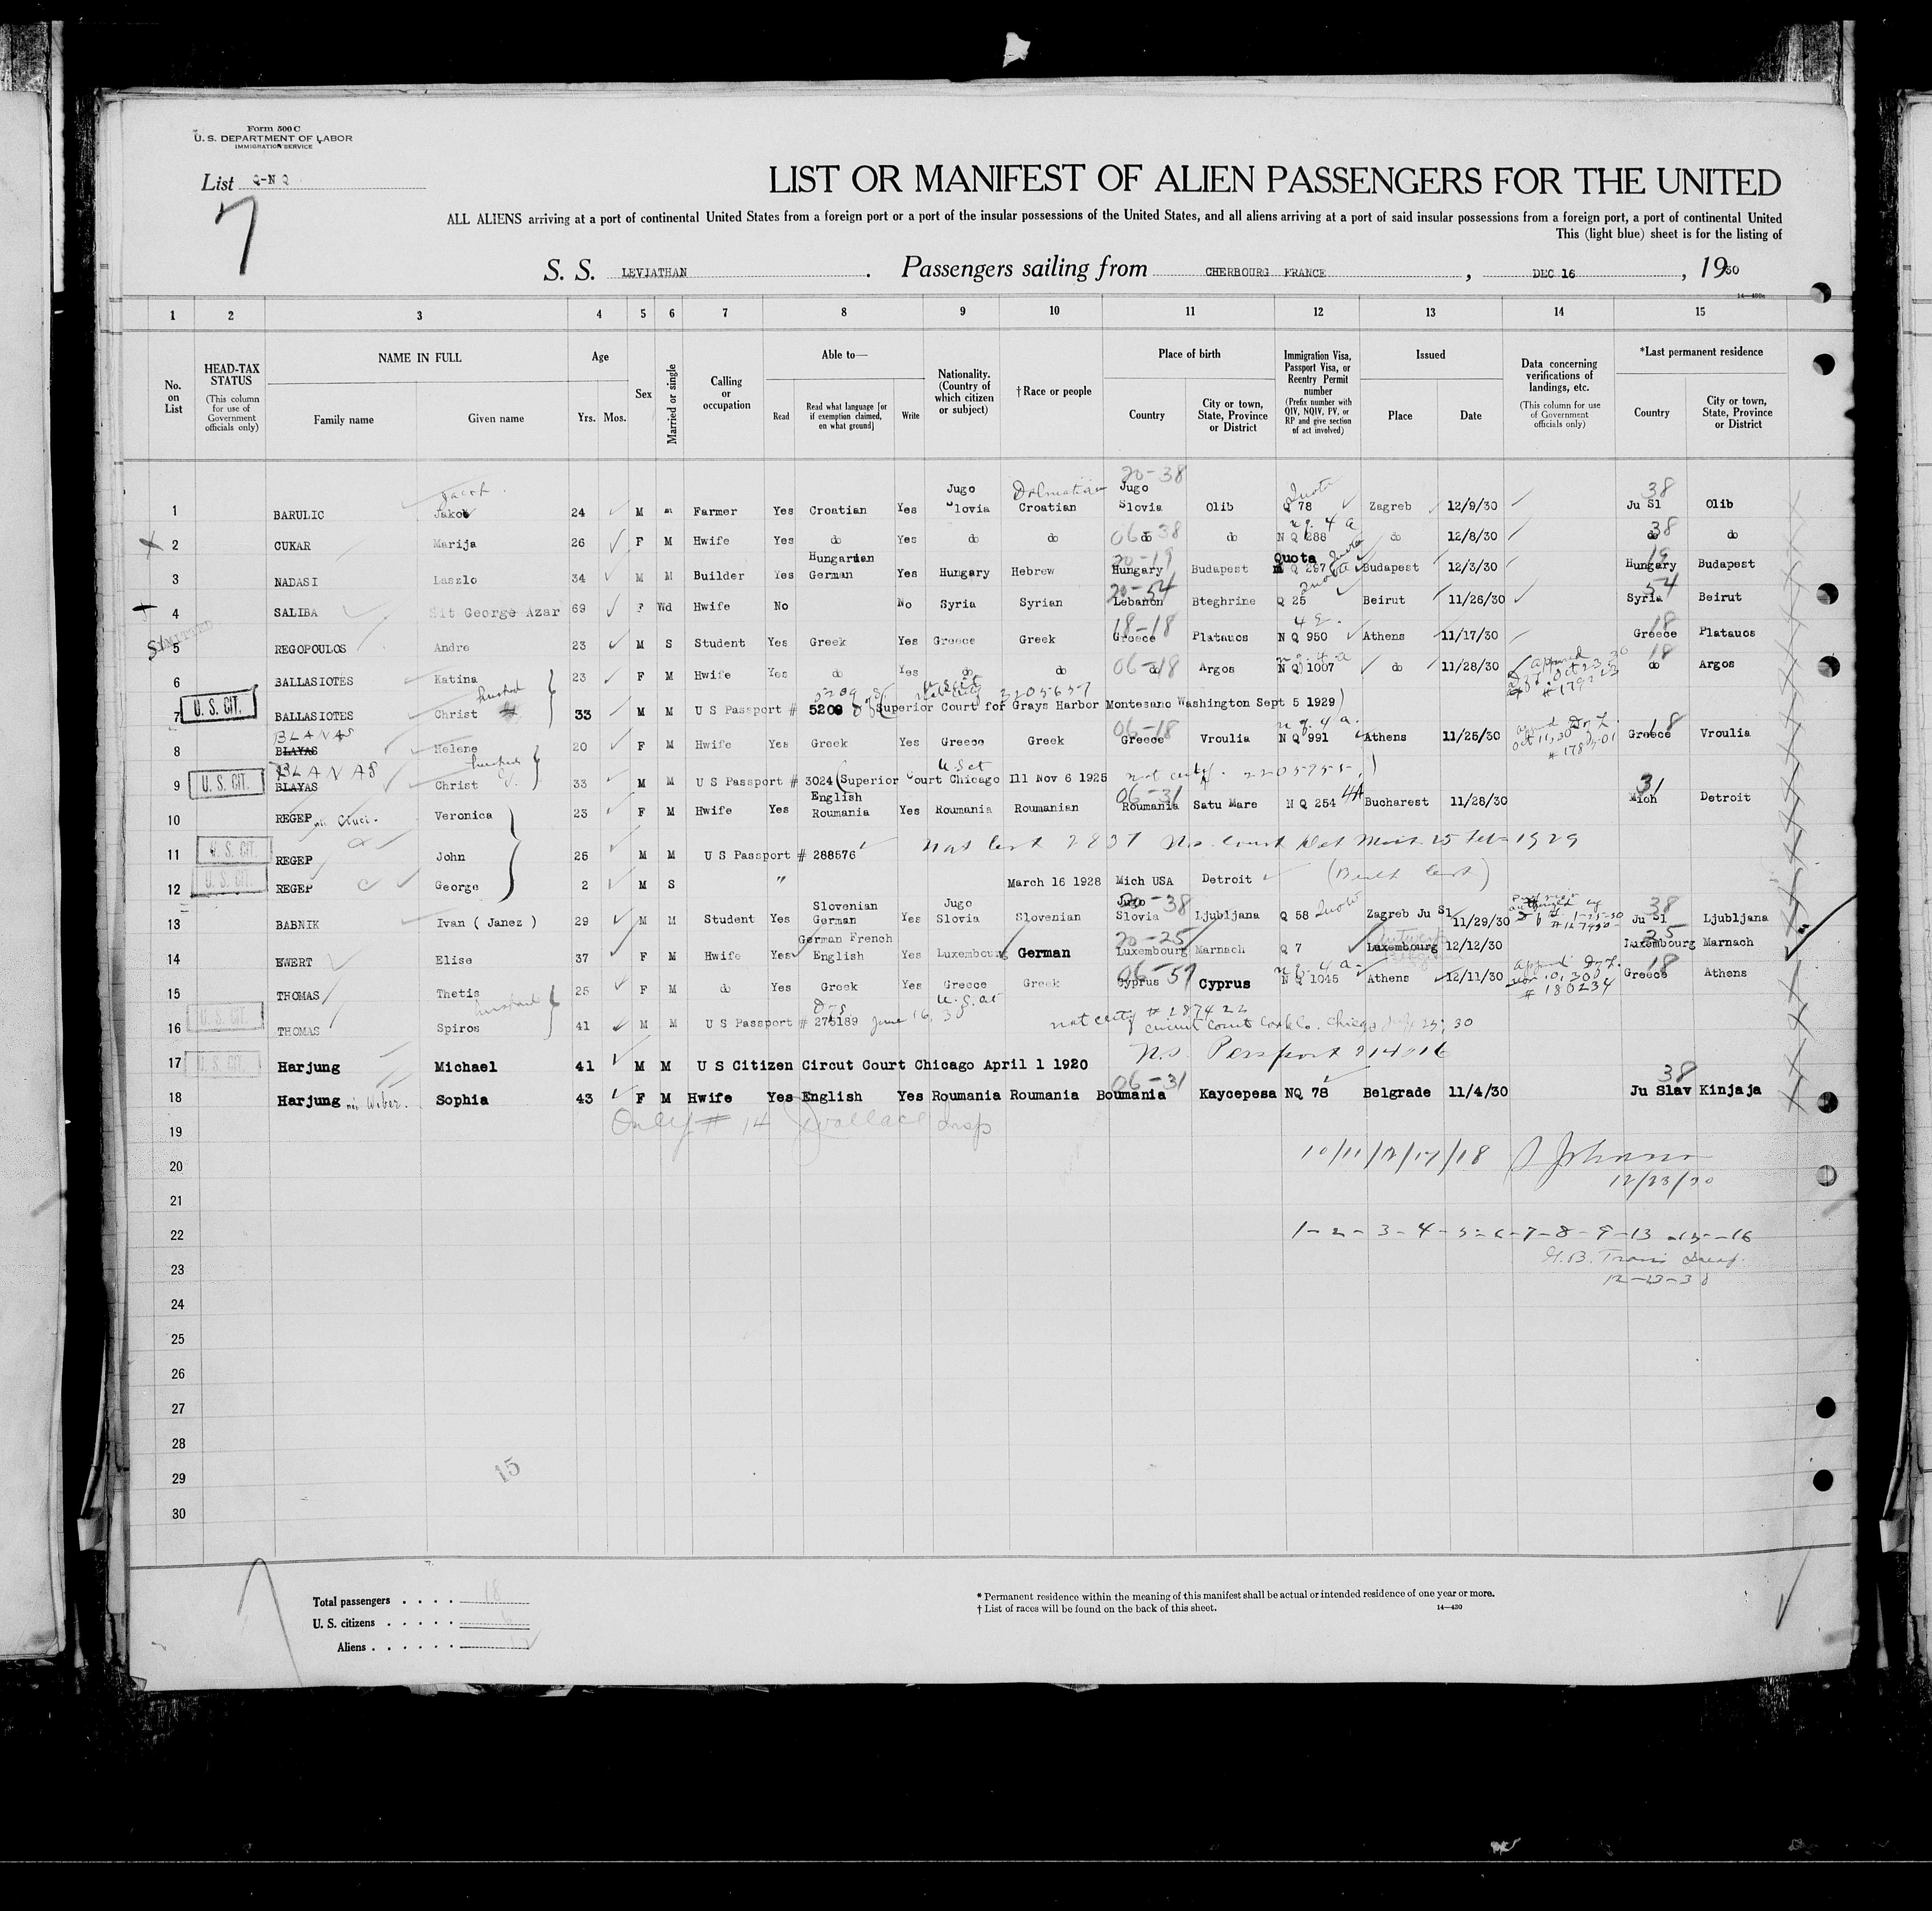 Form 500 C
U. S. DEPARTMENT OF LABOR
IMMIGRATION SERVICE
List Q-N Q
7
LIST OR MANIFEST OF ALIEN PASSENGERS FOR THE UNITED
ALL ALIENS arriving at a port of continental United States from a foreign port or a port of the insular possessions of the United States, and all aliens arriving at a port of said insular possessions from a foreign port, a port of continental United
This (light blue) sheet is for the listing of
S. S. LEVIATHAN . Passengers sailing from CHERBOURG FRANCE , DEC 16 , 1930
14—430c
1 2 3 4 5 6 7 8 9 10 11 12 13 14 15
No. on List
HEAD-TAX STATUS (This column for use of Government officials only)
NAME IN FULL Family name Given name
Age Yrs. Mos.
Sex
Married or single
Calling or occupation
Able to— Read Read what language [or if exemption claimed, on what ground] Write
Nationality. (Country of which citizen or subject)
†Race or people
Place of birth Country City or town, State, Province or District
Immigration Visa, Passport Visa, or Reentry Permit number (Prefix number with QIV, NQIV, PV, or RP and give section of act involved)
Issued Place Date
Data concerning verifications of landings, etc. (This column for use of Government officials only)
*Last permanent residence Country City or town, State, Province or District
20-38
Jacob Jugo Dalmatian Jugo Quota 38
1 BARULIC Jakov 24 M m Farmer Yes Croatian Yes Slovia Croatian Slovia Olib Q 78 Zagreb 12/9/30 Ju Sl Olib
06-38 n q. 4 a 38
2 CUKAR Marija 26 F M Hwife Yes do Yes do do do do N Q 288 do 12/8/30 do do
Hungarian 20-19 Quota Quota 19
3 NADASI Laszlo 34 M M Builder Yes German Yes Hungary Hebrew Hungary Budapest Q 297 Budapest 12/3/30 Hungary Budapest
20-54 Quota 54
4 SALIBA Sit George Azar 69 F Wd Hwife No No Syria Syrian Lebanon Bteghrine Q 25 Beirut 11/26/30 Syria Beirut
ADMITTED 18-18 4 E. 18
5 REGOPOULOS Andre 23 M S Student Yes Greek Yes Greece Greek Greece Platauos N Q 950 Athens 11/17/30 Greece Platauos
06-18 n q. 4 a 18
6 BALLASIOTES Katina 23 F M Hwife Yes do Yes do do do Argos N Q 1007 do 11/28/30 do Argos
# 179223
husband 5209 U S Cit 3205657
7 U. S. CIT. BALLASIOTES Christ 33 M M U S Passport # 5209 (Superior Court for Grays Harbor Montesano Washington Sept 5 1929)
BLANAS 06-18 n q. 4 a. 18
8 BLAYAS Helene 20 F M Hwife Yes Greek Yes Greece Greek Greece Vroulia N Q 991 Athens 11/25/30 Greece Vroulia
BLANAS husband U S Cit
9 U. S. CIT. BLAYAS Christ 33 M M U S Passport # 3024 (Superior Court Chicago Ill Nov 6 1925
English 06-31 4A 31
10 REGEP 23 Veronica F M Hwife Yes Roumania Yes Roumania Roumanian Roumania Satu Mare N Q 254 Bucharest 11/28/30 Mich Detroit
11 U. S. CIT. REGEP John 25 M M U S Passport # 288576 Nat Cert
12 U. S. CIT. REGEP George 2 M S " March 16 1928 Mich USA Detroit (Birth Cert)
Slovenian Jugo Jugo 38 Quota 38
13 BABNIK Ivan ( Janez ) 29 M M Student Yes German Yes Slovia Slovenian Slovia Ljubljana Q 58 Zagreb Ju Sl 11/29/30 Ju Sl Ljubljana
German French 20-25 25
14 EWERT Elise 37 F M Hwife Yes English Yes Luxembourg German Luxembourg Marnach Q 7 Luxembourg 12/12/30 Luxembourg Marnach
06-57 n q. 4 a- 18
15 THOMAS Thetis 25 F M do Yes Greek Yes Greece Greek Cyprus Cyprus N Q 1045 Athens 12/11/30 # 180234 Greece Athens
husband U. S. Cit
16 U. S. CIT. THOMAS Spiros 41 M M U S Passport # 275189 June 16, 30 # 287422
Circuit Court Cook Co. Chicago
17 U. S. CIT. Harjung Michael 41 M M U S Citizen Circut Court Chicago April 1 1920
06-31 38
18 Harjung née Weber. Sophia 43 F M Hwife Yes English Yes Roumania Roumania Boumania Kaycepesa NQ 78 Belgrade 11/4/30 Ju Slav Kinjaja
19 Only # 14 Wallace Insp
20 10/11/12/17/18
12/23/30
21
22 1-2-3-4-5-6-7-8-9-13-15-16
23
24
25
26
27
28
29
15
30
Total passengers . . . . 18
U. S. citizens . . . . . 6
Aliens . . . . . . 12
* Permanent residence within the meaning of this manifest shall be actual or intended residence of one year or more.
† List of races will be found on the back of this sheet. 14—430